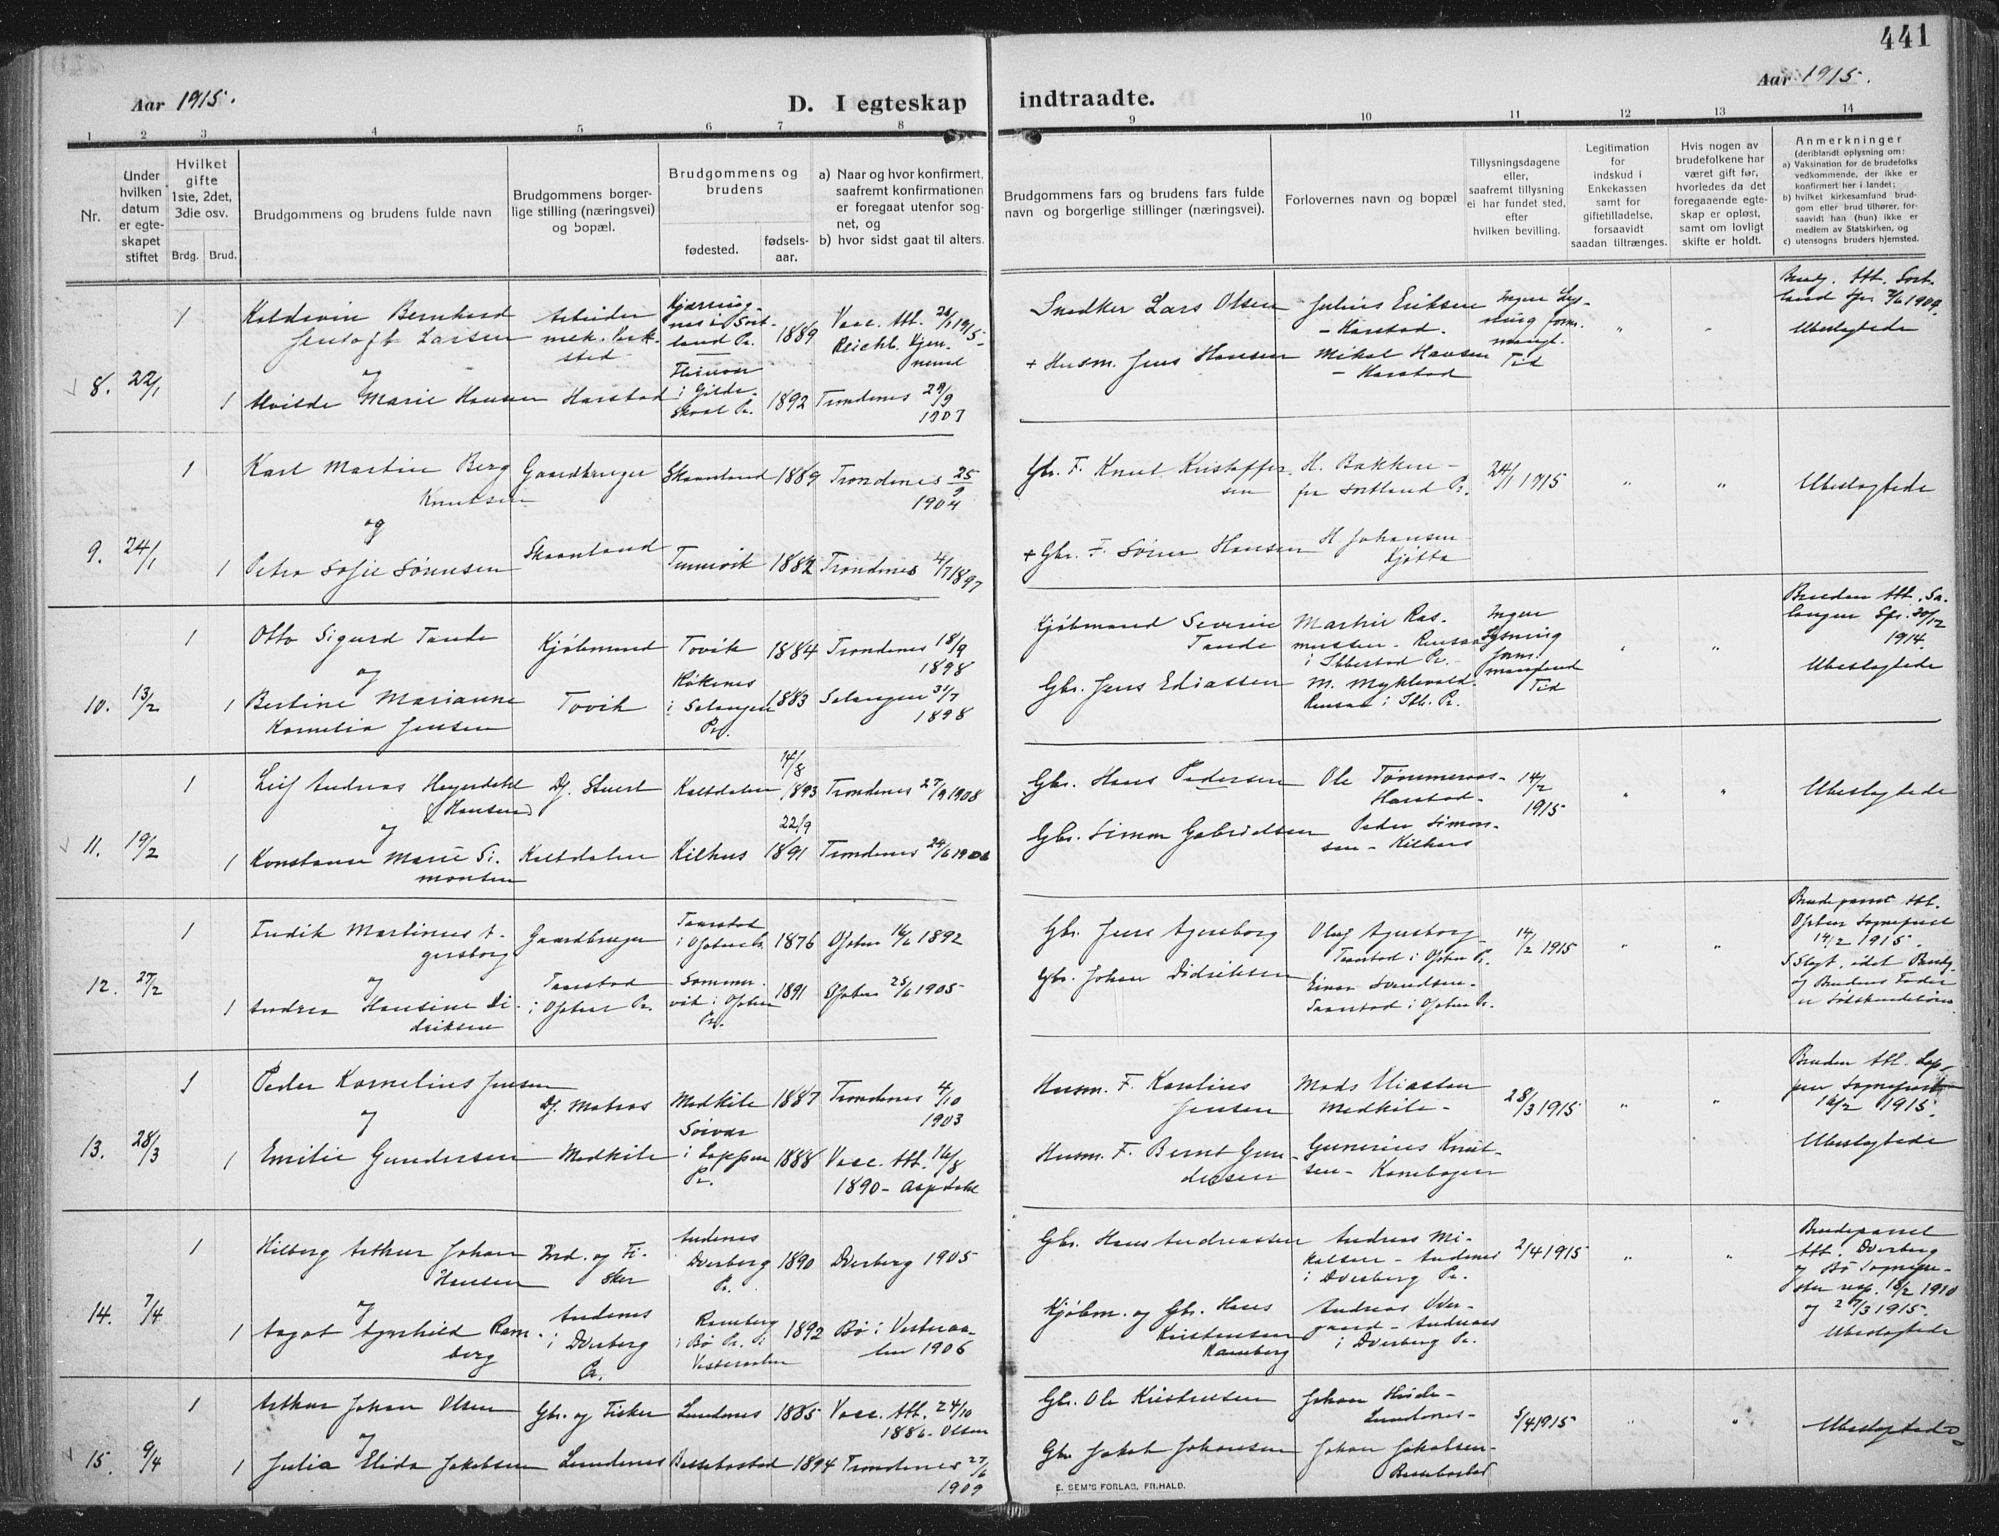 441
Aar 1915.
D. I egteskap indtraadte.
Aar 1915.
1 2 3 4 5 6 7 8 9 10 11 12 13 14
Nr.
Under hvilken datum er egteskapet stiftet
Hvilket gifte 1ste, 2det, 3die osv.
Brdg. Brud.
Brudgommens og brudens fulde navn
Brudgommens borgerlige stilling (næringsvei) og bopæl.
Brudgommens og brudens
fødested.
fødselsaar.
a) Naar og hvor konfirmert, saafremt konfirmationen er foregaat utenfor sognet, og
b) hvor sidst gaat til alters.
Brudgommens fars og brudens fars fulde navn og borgerlige stillinger (næringsvei).
Forlovernes navn og bopæl
Tillysningsdagene eller, saafremt tillysning ei har fundet sted, efter hvilken bevilling.
Legitimation for indskud i Enkekassen samt for giftetilladelse, forsaavidt saadan tiltrænges.
Hvis nogen av brudefolkene har været gift før, hvorledes da det foregaaende egteskap er opløst, samt om lovligt skifte er holdt.
Anmerkninger
(deriblandt oplysning om:
a) Vaksination for de brudefolks vedkommende, der ikke er konfirmert her i landet;
b) hvilket kirkesamfund brudgom eller brud tilhører, forsaavidt han (hun) ikke er medlem av Statskirken, og
c) utensogns bruders hjemsted.
8. 22/1
1 Bernhard Larsen Arbeider mek. Verksted 1889 Vacc. Att. 1915
Snedker Lars Olsen Julius Eriksen - Harstad. Ingen Lysning form. mangl. Tid
Ubeslegtede
og
1 Marie Hansen Harstad 1892 Trondenes 29/9 1907
+ Husm. Jens Hansen Mikal Hansen - Harstad
9. 24/1
1 Karl Martin Berg Knutsen Gaardbruger Skaanland 1889 Trondenes 25/9 1904
Gbr. F. Knut Kristoffersen H. Bakken - fra Sortland Pr. 24/1 1915 Ubeslegtede
og
1 Petra Sofie Sørensen Skaanland Tennevik 1882 Trondenes 4/7 1897
+ Gbr. F. Søren Hansen H Johansen Kjøtta
10. 13/2
1 Otto Sigurd Tande Kjøbmand Tovik 1884 Trondenes 18/9 1898
Kjøbmand Severin Tande Martin Rasmussen - Rensaa i Ibbestad Pr. - Ingen Lysning form. manglend Tid
Bruden Att. Salangen Spr. 30/12 1914.
Ubeslegtede
og
1 Bertine Marianne Kornelia Jensen Tovik Røkenes i Salangen Pr. 1883 Salangen 31/7 1898
Gbr. Jens Ediassen M. Myklevold - Rensaa i Ibb. Pr.
11. 19/2
1 Leif Andreas Heyerdahl (Hansen) Dj. Stuert Kaltdalen 14/8 1893 Trondenes 27/9 1908
Gbr. Hans Pedersen Ole Tømmeraas - Harstad - 14/2 1915 Ubeslegtede
og
1 Konstanse Marie Simonsen Kaltdalen Kilhus 22/9 1891 Trondenes 24/6 1906
Gbr. Simon Gabrielsen Peder Simonsen - Kilhus
12. 27/2
1 Fredik Martinus Agersborg Gaardbruger Taarstad i Ofoten Pr. 1876 Ofoten 16/6 1892
Gbr. Jens Agersborg Olaf Agersborg - Taarstad i Ofoten Pr. 14/2 1915
Brudeparret Att. Ofoten Sognepræst 14/2 1915.
Slegt, idet Brudg. og Brudens Fader er Søskendebørn
og
1 Andrea Hansine Didriksen Taarstad i Ofoten Pr. Sommervik i Ofoten Pr. 1891 Ofoten 25/6 1905
Gbr. Johan Didriksen Einar Svendsen - Taarstad i Ofoten Pr.
13. 28/3
1 Peder Kornelius Jensen Dj. Matros Medkile 1887 Trondenes 4/10 1903
Husm. F. Karolius Jensen Mads Eliassen Medkile - 28/3 1915
Bruden Att. Loppen Sognepræst 16/2 1915.
Ubeslegtede
og
1 Emilie Gundersen Medkile i Loppen Pr. 1888 Vacc. Att. 16/8 1890 - Aspdahl
Husm. F. Bernt Gundersen Gunerius Knutsen - Kanebogen
14. 7/4
1 Hilberg Arthur Johan Hansen Ind. og Fisker Andenes Dverberg Pr. 1890 Dverberg 1905
Gbr. Hans Andreassen Andreas Mikalsen - Andenes i Dverberg Pr. 2/4 1915
Brudeparret Att. Dverberg og Bø Sognepræster resp. 18/2 1910 og 27/3 1915.
Ubeslegtede
og
1 Aagot Ramberg Andenes i Dverberg Pr. Ramberg i Bø Pr. i Vesteraalen 1892 Bø i Vesteraalen 1906
Kjøbm. og Gbr. Hans Kristensen Ramberg Andreas - Andenes i Dverberg Pr.
15. 9/4
1 Arthur Johan Olsen Gbr. og Fisker Lundenes 1885 Vacc. Att. 24/10 1886. Olsen
Gbr. Ole Kristensen Johan - Lundenes - 5/4 1915 Ubeslegtede
og
1 Julia Elida Jakobsen Lundenes Bessebostad 1894 Trondenes 27/6 1909
Gbr Jakob Johansen Johan Jakobsen - Bessebostad
E. SEM'S FORLAG, FR.HALD.